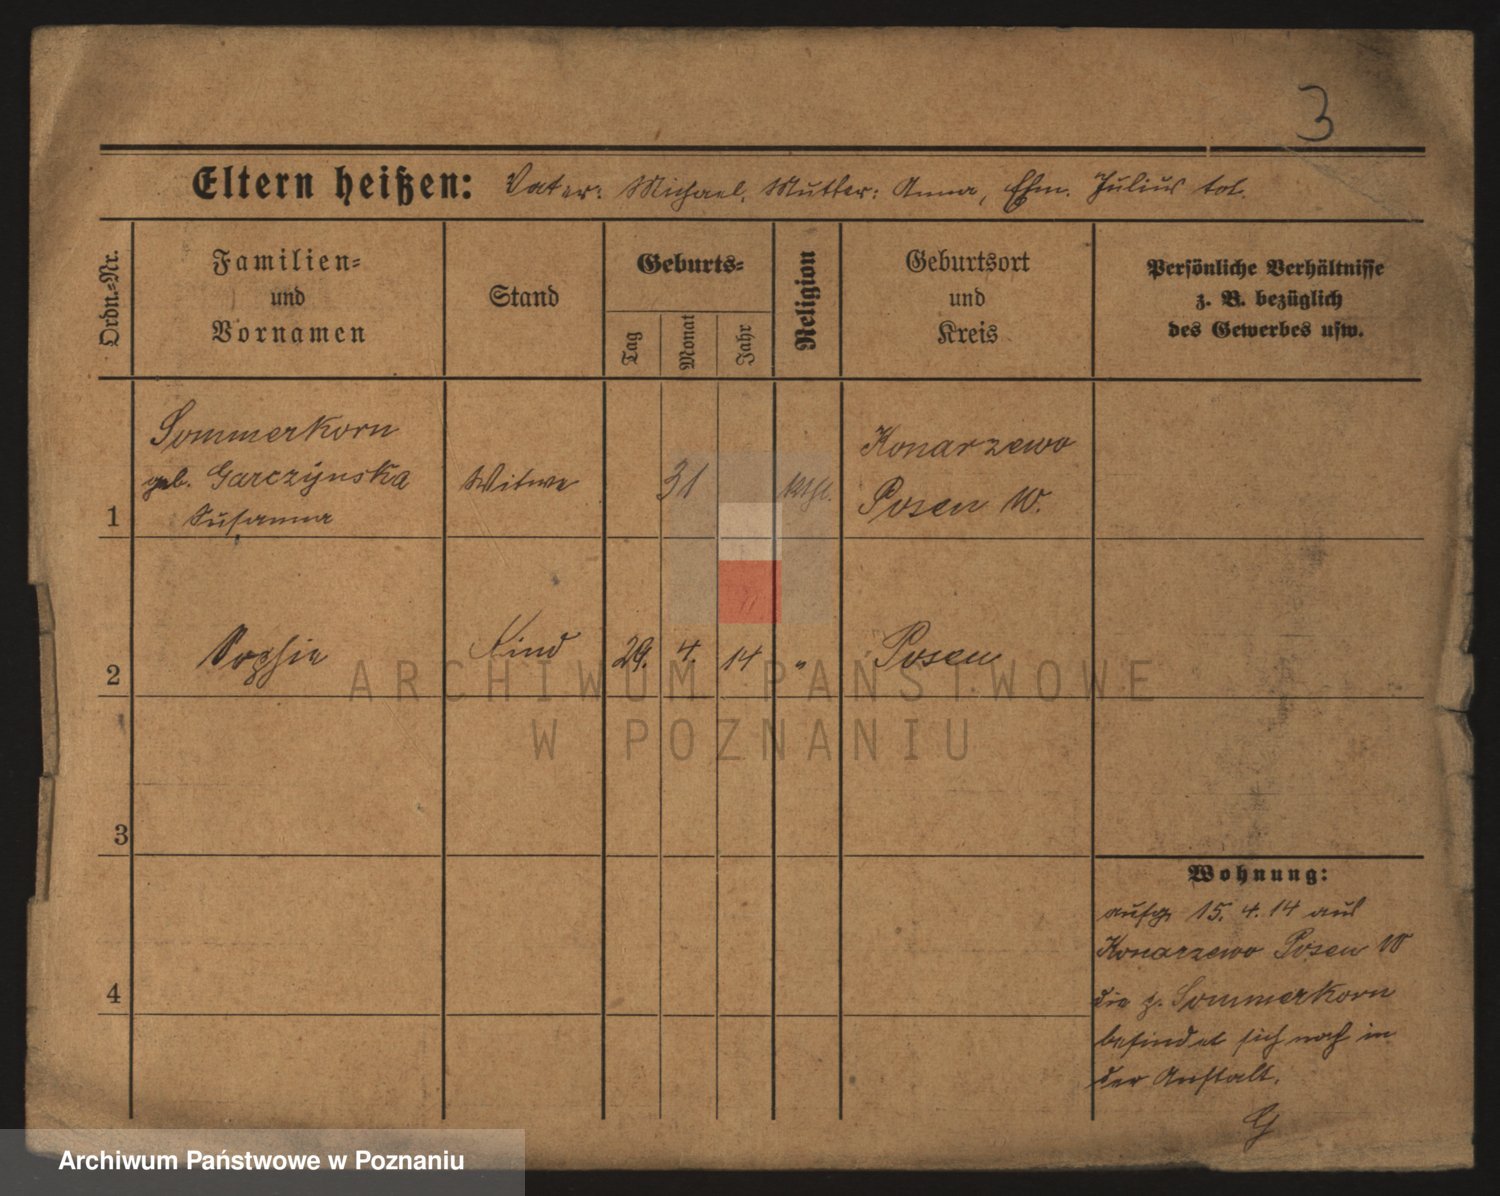 3
Eltern heißen: Vater: Michael. Mutter: Anna, Ehm. Julius tot.
Ordn.-Nr.
Familien-
und
Vornamen
Stand
Geburts-
Tag
Monat
Jahr
Religion
Geburtsort
und
Kreis
Persönliche Verhältnisse
z. B. bezüglich
des Gewerbes usw.
1
Sommerkorn
geb. Garczynska
Susanna
Witwe
31
kthl.
Konarzewo
Posen W.
2
Sophie
Kind
29. 4. 14
"
Posen
3
4
Wohnung:
aufg. 15. 4. 14 aus
Konarzewo Posen W
die p. Sommerkorn
befindet sich noch in
der Anstalt.
G
ARCHIWUM PAŃSTWOWE
W POZNANIU
Archiwum Państwowe w Poznaniu